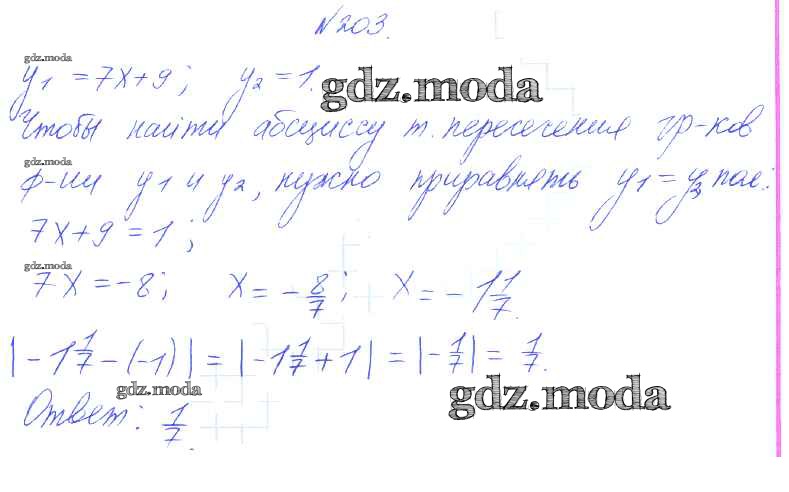 №203.
gdz.moda
y₁ = 7x+9; y₂ = 1.
gdz.moda
Чтобы найти абсциссу т. пересечения гр-ков
gdz.moda
ф-ии y₁ и y₂, нужно приравнять y₁ = y₂ пол.:
7x+9 = 1;
gdz.moda
7x = -8; x = -8/7; x = -1 1/7.
|-1 1/7 - (-1)| = |-1 1/7 + 1| = |-1/7| = 1/7.
gdz.moda
gdz.moda
Ответ: 1/7.